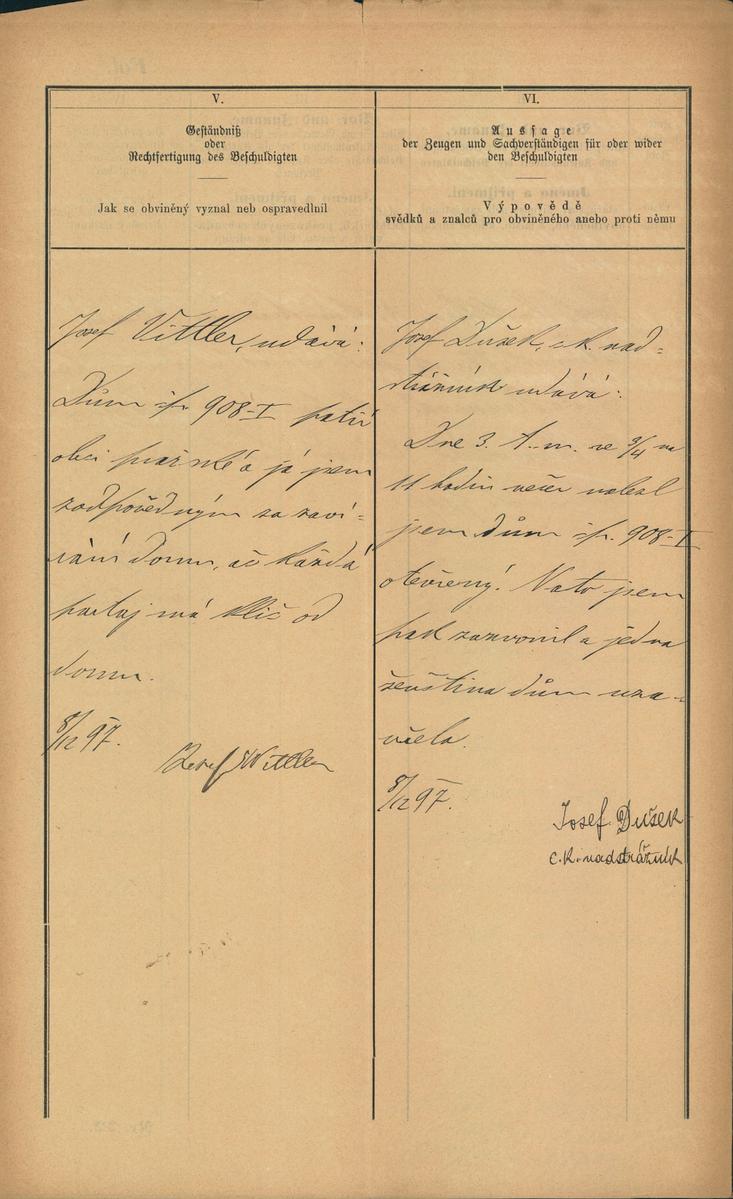 V.
Geständniß
oder
Rechtfertigung des Beschuldigten
Jak se obviněný vyznal neb ospravedlnil
Josef Vittler, udává:
Dům čp. 908-I patří
obci pražské a já jsem
zodpovědným za zaví-
rání domu, ač každá
partaj má klíč od
domu.
8/12 97.
Josef Wittler
VI.
Aussage
der Zeugen und Sachverständigen für oder wider
den Beschuldigten
Výpovědě
svědků a znalců pro obviněného anebo proti němu
Josef Dušek, c.k. nad-
strážník udává:
Dne 3. t. m. ve 3/4 na
11 hodin večer nalezl
jsem dům čp. 908-I
otevřený. Nato jsem
pak zazvonil a jedna
ženština dům uza-
vřela.
8/12 97.
Josef Dušek
c.k. nadstrážník